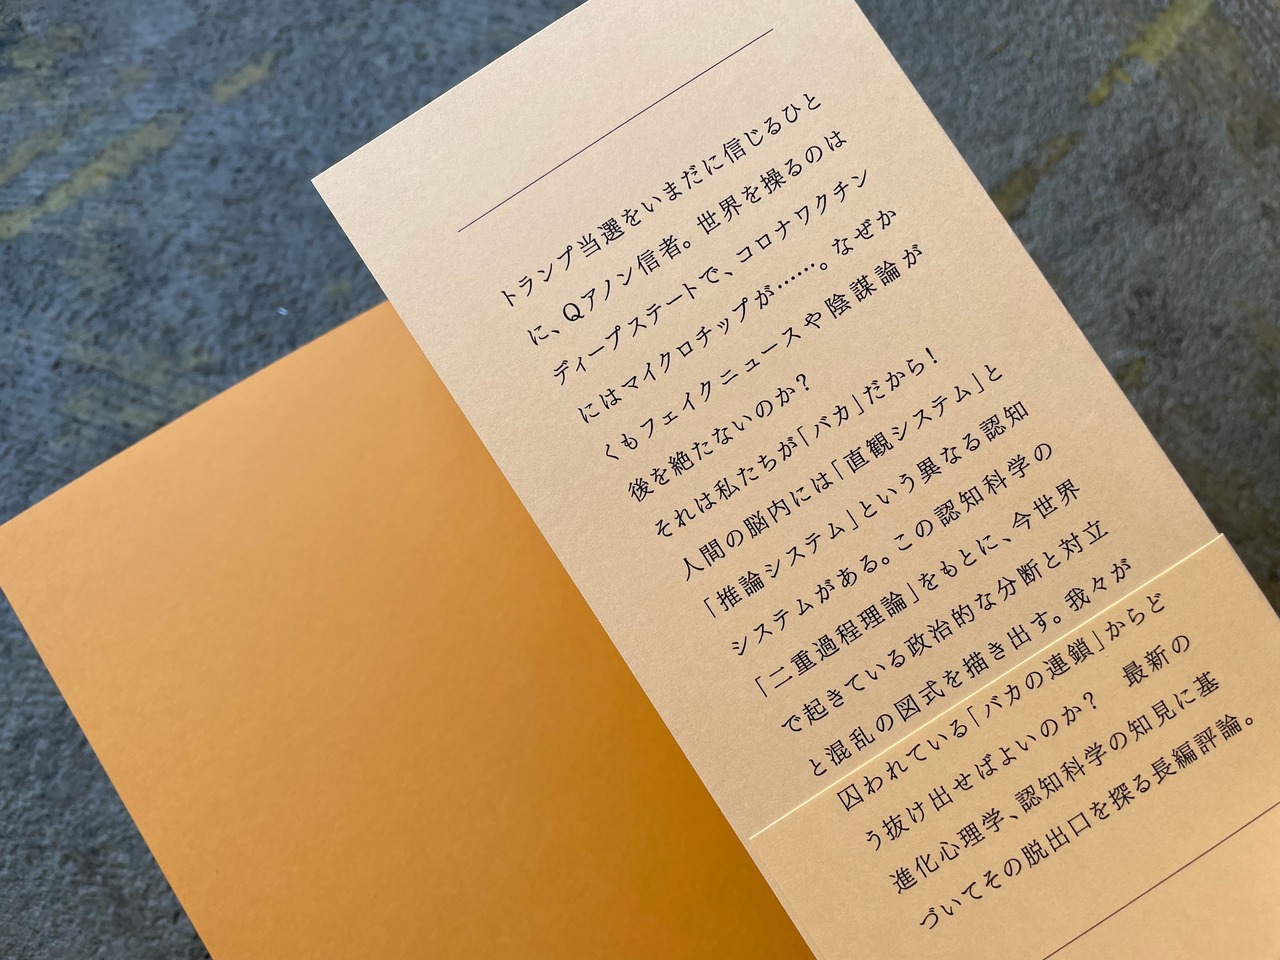 トランプ当選をいまだに信じるひと
に、Qアノン信者。世界を操るのは
ディープステートで、コロナワクチン
にはマイクロチップが……。なぜか
くもフェイクニュースや陰謀論が
後を絶たないのか?
それは私たちが「バカ」だから!
人間の脳内には「直観システム」と
「推論システム」という異なる認知
システムがある。この認知科学の
「二重過程理論」をもとに、今世界
で起きている政治的な分断と対立
と混乱の図式を描き出す。我々が
囚われている「バカの連鎖」からど
う抜け出せばよいのか? 最新の
進化心理学、認知科学の知見に基
づいてその脱出口を探る長編評論。